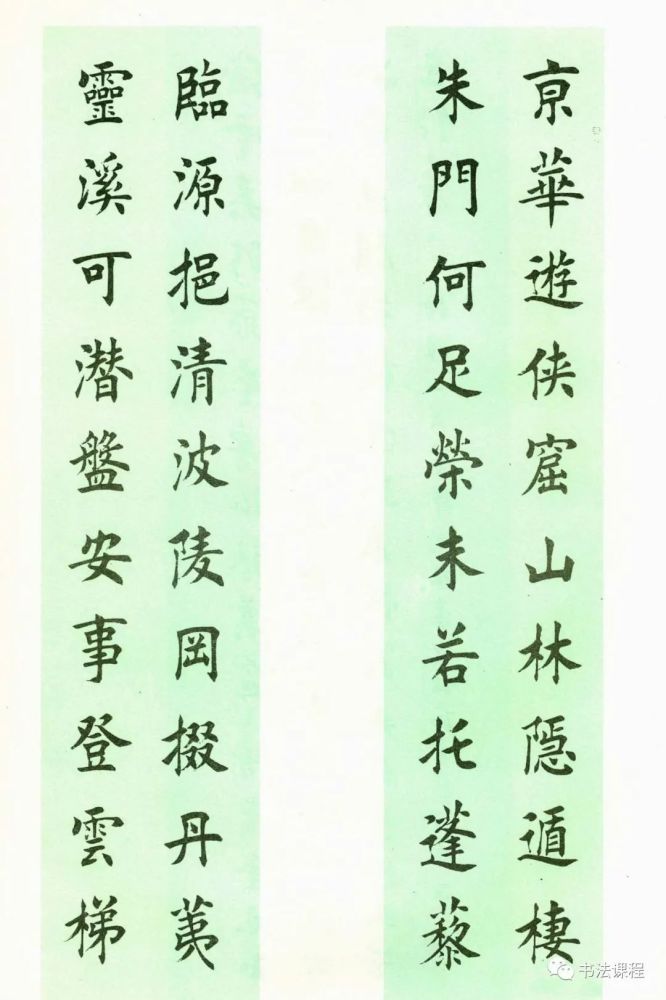 京華遊侠窟山林隱遁棲
朱門何足榮未若托蓬藜
臨源挹清波陵岡掇丹荑
靈溪可潜盤安事登雲梯
书法课程